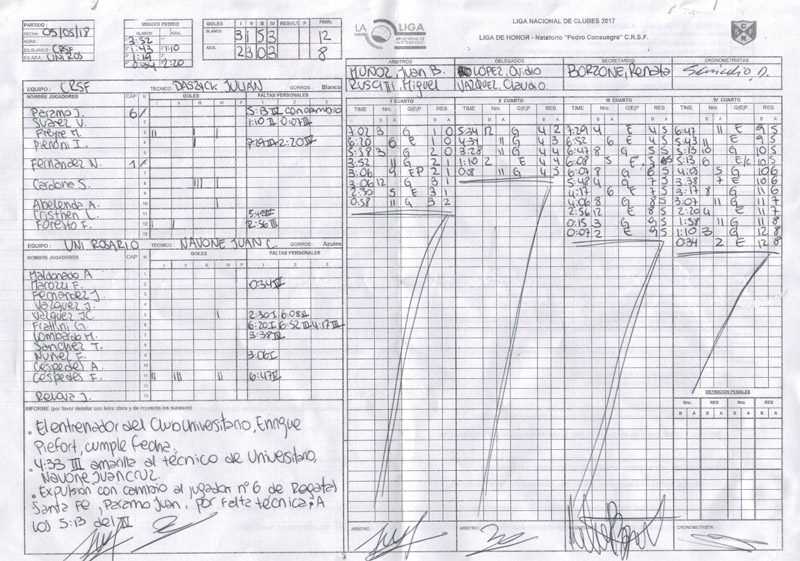 PARTIDO
FECHA 05/05/18
HORA
EQ.BLANCO CRSF
EQ.AZUL UNI ROS
MINUTO PEDIDO
BLANCO AZUL
3:52
1:43 1:10
1:19
0:34 1:20
GOLES I II III IV RESULT. P FINAL
BLANCO 3 1 5 3 12
AZUL 2 3 0 3 8
LA LIGA
ARGENTINA DE WATERPOLO
LIGA NACIONAL DE CLUBES 2017
LIGA DE HONOR - Natatorio "Pedro Consuegra" C.R.S.F.
ARBITROS DELEGADOS SECRETARIOS CRONOMETRISTAS
MUÑOZ, Juan B. LOPEZ, Ovidio BORZONE, Renata
RUSCITTI, Miguel VAZQUEZ, Claudio
EQUIPO: CRSF TECNICO JULIAN GORROS Blanco
NOMBRE JUGADORES CAP N GOLES FALTAS PERSONALES
I II III IV P 1 2 3
Paramo J. 6 5:13 IV con cambio
Suarez V. 1:10 II 0:07 III
Freyre M.
Pienoni I. 7:29 III 2:20 IV
Fernandez N.
Cardone S.
Abelenda A.
Cristhen L.
Foresto F. 2:56 III
EQUIPO: UNI ROSARIO TECNICO NAVONE JUAN C. GORROS Azules
NOMBRE JUGADORES CAP N GOLES FALTAS PERSONALES
I II III IV P 1 2 3
Maldonado A
Marozzi F. 0:34 IV
Fernandez J.
Vazquez J.
Vazquez JC 2:30 I 6:08 III
Frattini G. 6:20 I 6:52 III 4:17 III
Lombardo M. 3:38 IV
Sanchez T.
Nuñez F. 3:06 I
Cespedes A
Cespedes F. 6:47 IV
INFORME (por favor detallar con letra clara y de imprenta los sucesos)
· El entrenador del Club Universitario, Enrique
Piefort, cumple fecha.
· 4:33 III amarilla al técnico de Universitario
Navone Juan Cruz.
· Expulsion con cambio al jugador nº 6 de Regatas
Santa Fe, Paramo Juan, por falta técnica, A
los 5:13 del IV
I CUARTO
TIME Nro. G/E/P RES
B A B A
7:02 3 G 1 0
6:20 6 E 1 0
5:58 3 G 2 0
3:52 11 G 2 1
3:06 9 EP 2 1
3:06 12 G 3 1
2:30 5 E 3 1
0:58 11 G 3 2
II CUARTO
TIME Nro. G/E/P RES
B A B A
5:34 12 G 4 2
4:31 11 G 4 3
3:28 11 G 4 4
1:10 2 E 4 4
0:8 11 G 4 5
III CUARTO
TIME Nro. G/E/P RES
B A B A
7:29 4 E 4 5
6:52 6 E 4 5
6:47 8 G 5 5
6:08 5 E 5 5
6:07 8 G 6 5
5:48 4 G 7 5
4:17 6 E 7 5
4:06 8 G 8 5
2:56 12 E 8 5
0:15 3 G 9 5
0:07 2 E 9 5
IV CUARTO
TIME Nro. G/E/P RES
B A B A
6:47 11 E 9 5
5:43 11 E 9 5
5:13 10 G 10 5
5:13 6 E/C 10 5
4:09 5 G 10 6
3:38 7 E 10 6
3:17 8 G 11 6
3:07 11 G 11 7
2:20 4 E 11 7
1:58 11 G 11 8
1:10 3 G 12 8
0:34 2 E 12 8
DEFINICIÓN PENALES
Nro. RES Nro. RES
B A B A B A B A
ARBITRO ARBITRO SECRETARIO CRONOMETRISTA